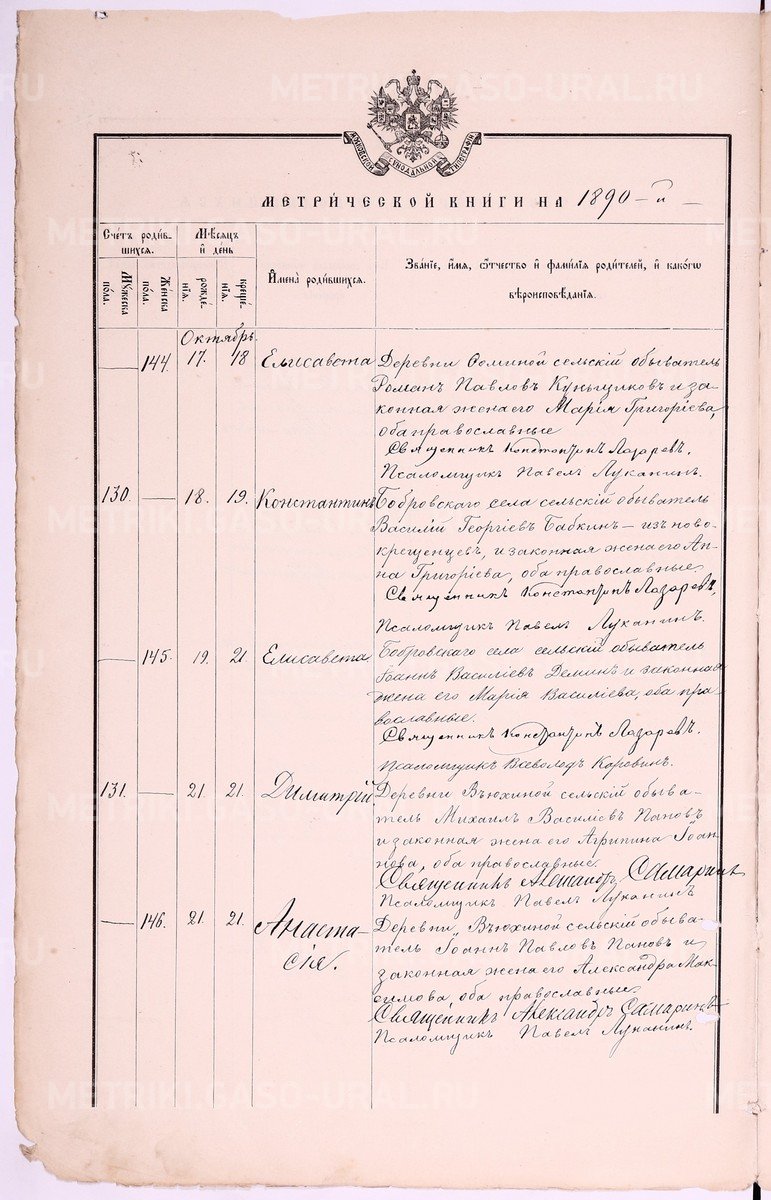 METRIKI.GASO-URAL.RU
МОСКОВСКОЙ СѴНОДАЛЬНОЙ ТИПОГРАФІИ
МЕТРИ́ЧЕСКОЙ КНИ́ГИ НА 1890-й
Сче́тъ роди́в-
шихся.
Мѣ́сяцъ
и҆ де́нь
И҆мена̀ роди́вшихся.
Зва́нїе, и҆́мя, ѻ҆́тчество и҆ фамилїя роди́телей, и҆ како́гѡ
вѣроисповѣ́данїя.
Мꙋ́жеска по́ла.
Же́нска по́ла.
рожде́-нїя.
креще́-нїя.
Октябрь.
— 144. 17. 18 Елисавета Деревни Ѳоминой сельскій обыватель
Романъ Павловъ Куньщиковъ и за-
конная жена его Марія Григоріева,
оба православные
Священникъ Константинъ Лазаревъ.
Псаломщикъ Павелъ Луканинъ.
130. — 18. 19. Константинъ Бобровскаго села сельскій обыватель
Василій Георгіевъ Бабкинъ — изъ ново-
крещенцевъ, и законная жена его Ан-
на Григоріева, оба православные.
Священникъ Константинъ Лазаревъ,
Псаломщикъ Павелъ Луканинъ.
— 145. 19. 21. Елисавета Бобровскаго села сельскій обыватель
Іоаннъ Василіевъ Деминъ и законная
жена его Марія Василіева, оба пра-
вославные.
Священникъ Константинъ Лазаревъ.
Псаломщикъ Всеволодъ Коровинъ.
131. — 21. 21. Димитрій. Деревни Вьюхиной сельскій обыва-
тель Михаилъ Василіевъ Пановъ
и законная жена его Агрипина Іоан-
нова, оба православные.
Священникъ Александръ Самаринъ
Псаломщикъ Павелъ Луканинъ
— 146. 21. 21. Анаста- Деревни Вьюхиной сельскій обыва-
тель Іоаннъ Павловъ Пановъ и
сія. законная жена его Александра Мак-
симова, оба православные.
Священникъ Александръ Самаринъ
Псаломщикъ Павелъ Луканинъ.